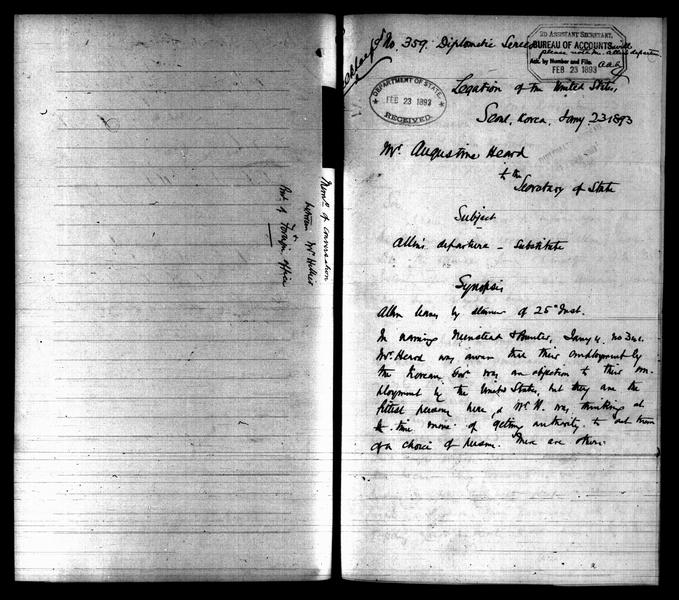 Memo of conversation
between Mr
& Foreign office
No. 359. Diplomatic Series
2D ASSISTANT SECRETARY.
BUREAU OF ACCOUNTS will
please note Mr. Allen's departure
Ack. by Number and File.
FEB 23 1893
DEPARTMENT OF STATE,
FEB 23 1893
RECEIVED.
Legation of the United States,
Seoul, Korea, Jany 23 1893
Mr. Augustine Heard
to the
Secretary of State
Subject
Allen's departure - Substitute
Synopsis
Allen leaves by steamer of 25" Inst.
In naming & Hunter, Jany 4. No
Mr. Heard was aware that their employment by
the Korean Govt was an objection to their em-
ployment by the United States, but they are the
fittest persons here, & Mr. H. was thinking at
the time more of getting authority to act than
of a choice of person. There are others